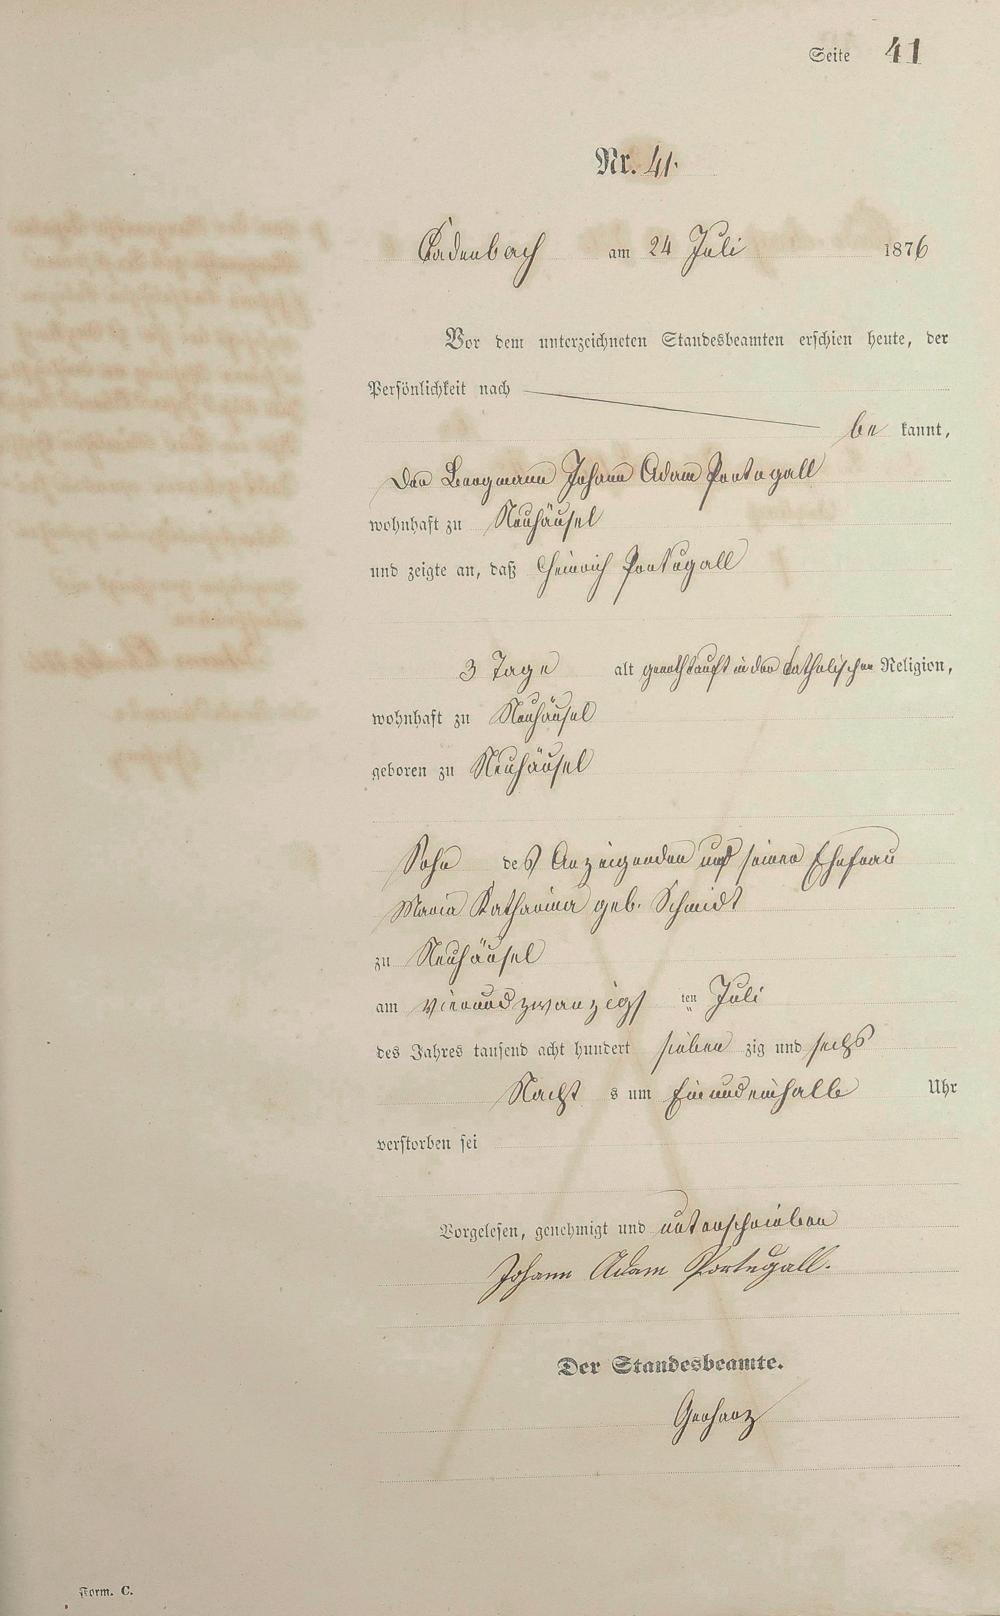 Seite 41
Nr. 41.
Cadenbach am 24 Juli 1876
Vor dem unterzeichneten Standesbeamten erschien heute, der
Persönlichkeit nach
be kannt,
der Bergmann Johann Adam Portugall
wohnhaft zu Neuhäusel
und zeigte an, daß Heinrich Portugall
3 Tage alt genothtauft in der katholischen Religion,
wohnhaft zu Neuhäusel
geboren zu Neuhäusel
Sohn des Anzeigenden und seiner Ehefrau
Maria Katharina geb. Schmidt
zu Neuhäusel
am vierundzwanzigs ten Juli
des Jahres tausend acht hundert sieben zig und sechs
Nacht s um Einundeinhalb Uhr
verstorben sei
Vorgelesen, genehmigt und unterschrieben
Johann Adam Portugall.
Der Standesbeamte.
Gerharz
Form. C.